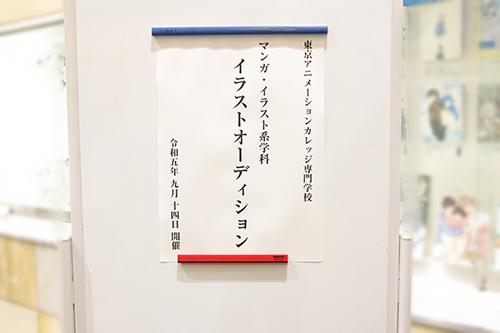 東京アニメーションカレッジ専門学校
マンガ・イラスト系学科
イラストオーディション
令和五年 九月 十四日 開催